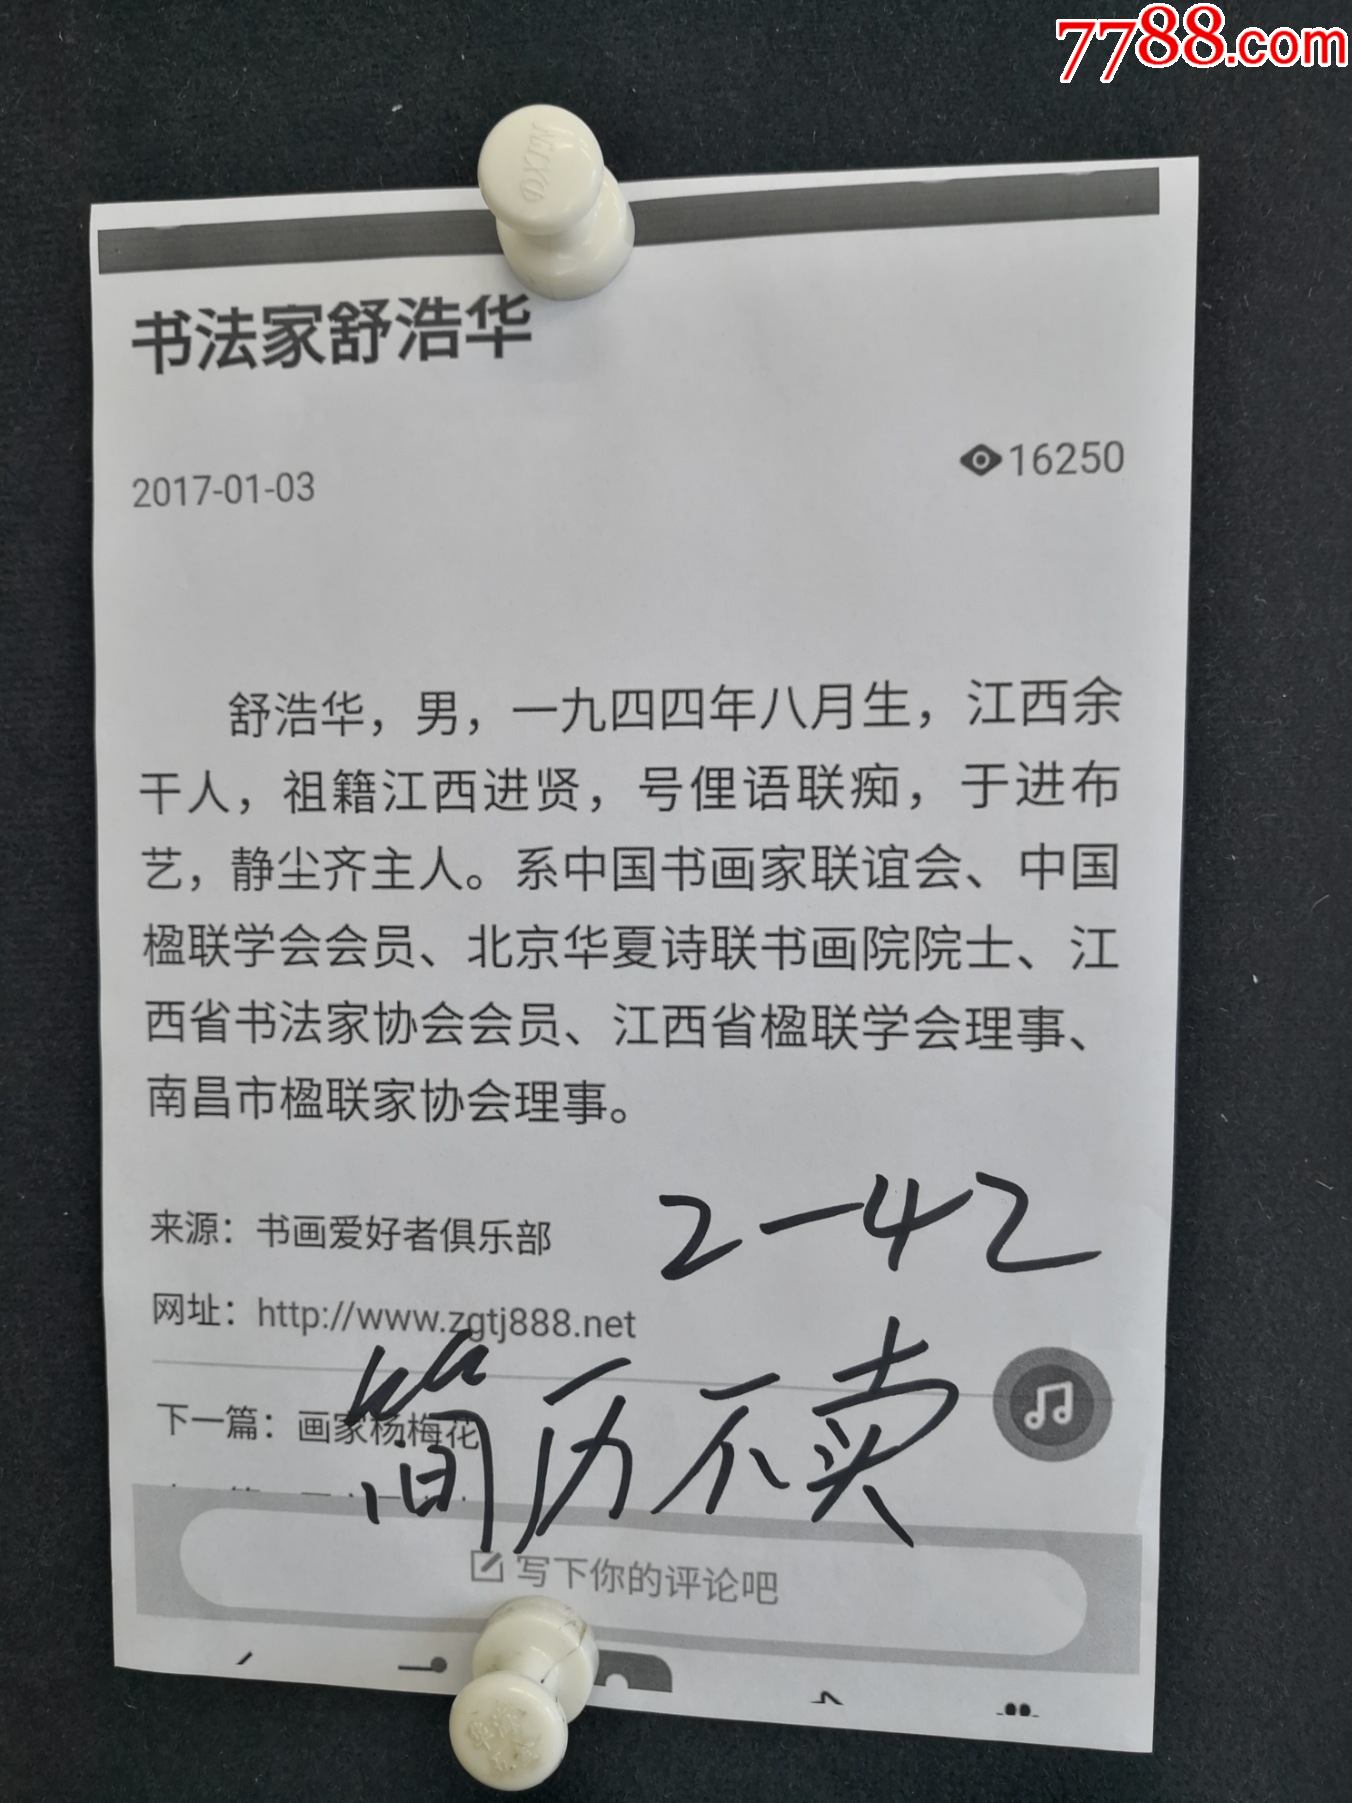 7788.com
NILXO
书法家舒浩华
2017-01-03
16250
舒浩华，男，一九四四年八月生，江西余
干人，祖籍江西进贤，号俚语联痴，于进布
艺，静尘齐主人。系中国书画家联谊会、中国
楹联学会会员、北京华夏诗联书画院院士、江
西省书法家协会会员、江西省楹联学会理事、
南昌市楹联家协会理事。
来源：书画爱好者俱乐部
2-42
网址：http://www.zgtj888.net
简历不卖
下一篇：画家杨梅花
写下你的评论吧